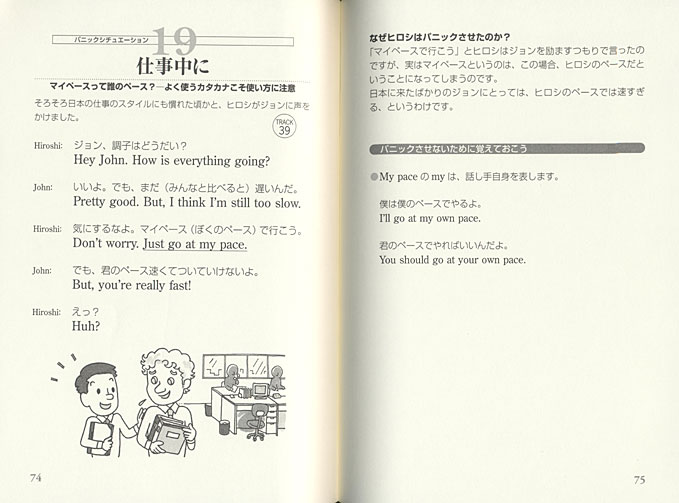 パニックシチュエーション
19
仕事中に
マイペースって誰のペース?―よく使うカタカナこそ使い方に注意
そろそろ日本の仕事のスタイルにも慣れた頃かと、ヒロシがジョンに声を
かけました。
TRACK
39
Hiroshi: ジョン、調子はどうだい?
Hey John. How is everything going?
John: いいよ。でも、まだ(みんなと比べると)遅いんだ。
Pretty good. But, I think I'm still too slow.
Hiroshi: 気にするなよ。マイペース(ぼくのペース)で行こう。
Don't worry. Just go at my pace.
John: でも、君のペース速くてついていけないよ。
But, you're really fast!
Hiroshi: えっ?
Huh?
74
なぜヒロシはパニックさせたのか?
「マイペースで行こう」とヒロシはジョンを励ますつもりで言ったの
ですが、実はマイペースというのは、この場合、ヒロシのペースだと
いうことになってしまうのです。
日本に来たばかりのジョンにとっては、ヒロシのペースでは速すぎ
る、というわけです。
パニックさせないために覚えておこう
●My pace の my は、話し手自身を表します。
僕は僕のペースでやるよ。
I'll go at my own pace.
君のペースでやればいいんだよ。
You should go at your own pace.
75